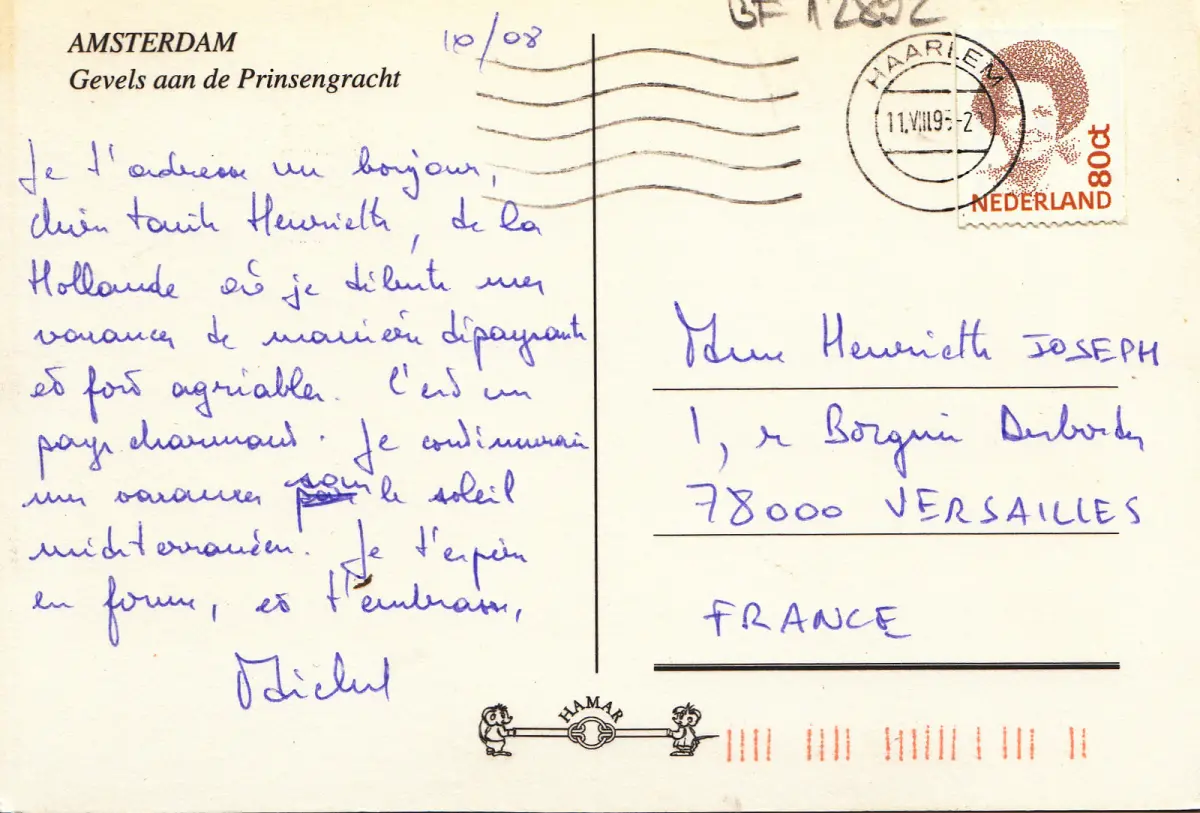 BF 12892
AMSTERDAM
Gevels aan de Prinsengracht
10/08
HAARLEM
11.VIII.95-2
80ct
NEDERLAND
Je t'adresse un bonjour,
chère tante Henriette, de la
Hollande où je débute mes
vacances de manière dépaysante
et fort agréable. C'est un
pays charmant. Je continuerai
mes vacances sous le soleil
méditerranéen. Je t'espère
en forme, et t'embrasse,
Michel
Mme Henriette JOSEPH
1, r Borgnis Desbordes
78000 VERSAILLES
FRANCE
HAMAR